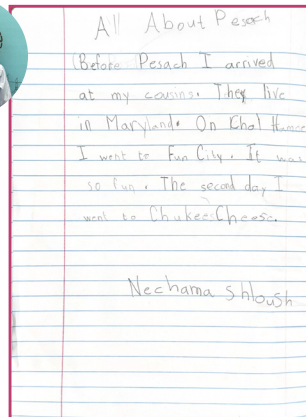 All About Pesach
Before Pesach I arrived
at my cousins. They live
in Maryland. On Chol Hamoe
I went to Fun City. It was
so fun. The second day I
went to Chukee Cheese.
Nechama Shloush